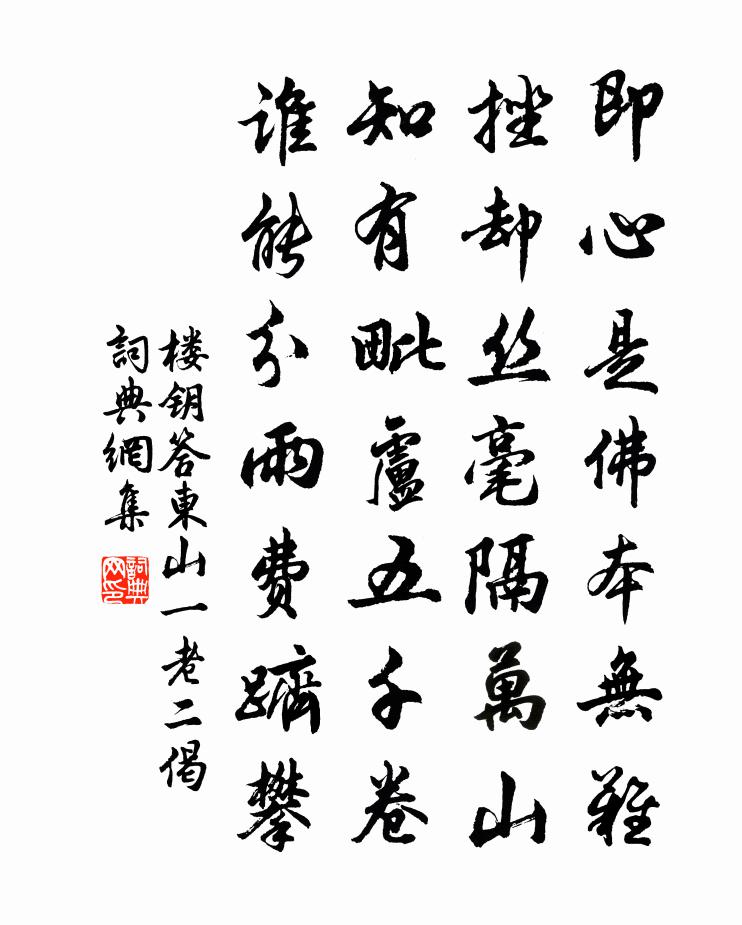 即心是佛本無難
挫却丝毫隔萬山
知有毗盧五千卷
誰能分兩費躋攀
楼钥答東山一老二偈
詞典網集
詞典网印